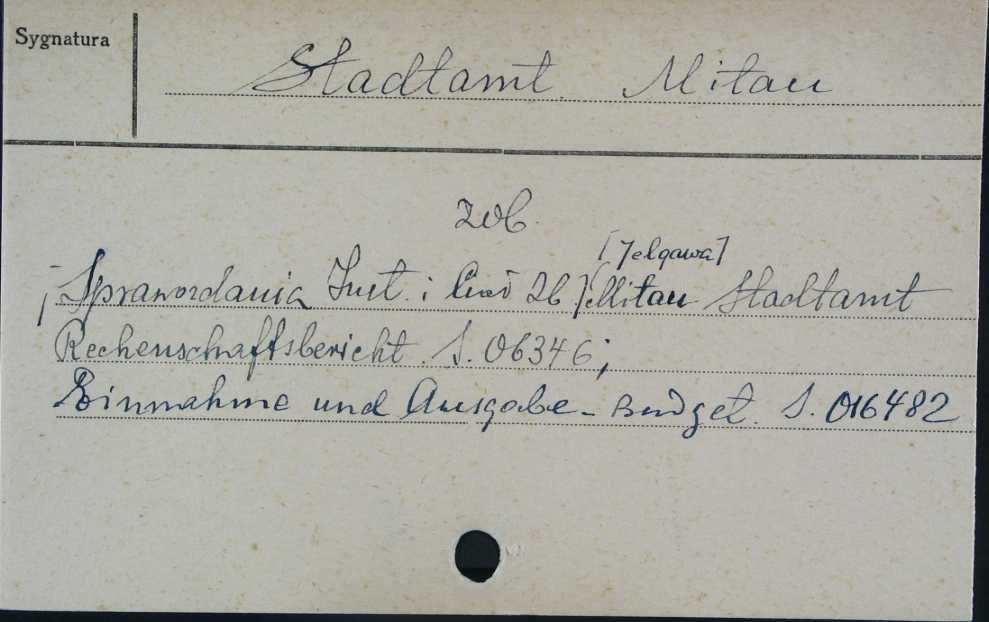 Sygnatura
Stadtamt Mitau
zob.
[Jelgawa]
Sprawozdania Inst. i Mitau Stadtamt
Rechenschaftsbericht S. 06346;
Einnahme und Ausgabe - Budget. S. 016482